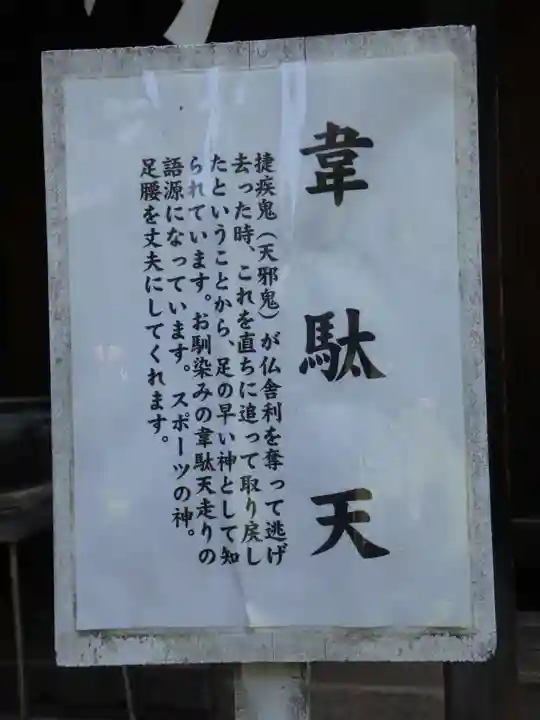 韋駄天
捷疾鬼(天邪鬼)が仏舎利を奪って逃げ
去った時、これを直ちに追って取り戻し
たということから、足の早い神として知
られています。お馴染みの韋駄天走りの
語源になっています。スポーツの神。
足腰を丈夫にしてくれます。